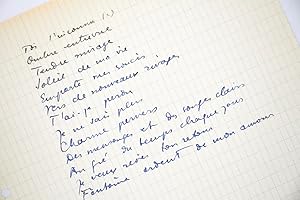 Toi l'inconnu (e)
Ombre entrevue
Tendre mirage
Soleil de ma vie
Emporte mes soucis
Vers de nouveaux rivages
T'ai-je perdu
Je ne sais plus
Charme pervers
Des mensonges et des songes clairs
Au gré du temps chaque jour
Je veux rêver ton retour
Fontaine ardente de mon amour